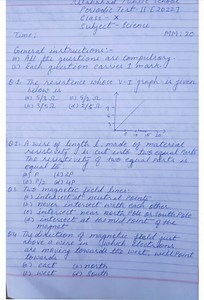 Public School
Periodic Test-II (2022)
Class - X
Subject - Science
Time: MM: 20
General instructions:-
All the questions are compulsory.
Each question carries 1 mark.
Q.1. The resistance whose V-I graph is given
below is
Q.2. A wire of length l, made of material
resistivity ρ is cut into two equal parts.
The resistivity of two equal parts is
equal to
a) ρ
Q.3. Two magnetic field lines:
a) intersect at neutral points
never intersect with each other
intersect near north Pole or south Pole
intersect at the mid point of the
magnet
Q.4. The direction of magnetic field just
above a wire in which electrons
are moving towards the west, will point
towards
a) east north
west south